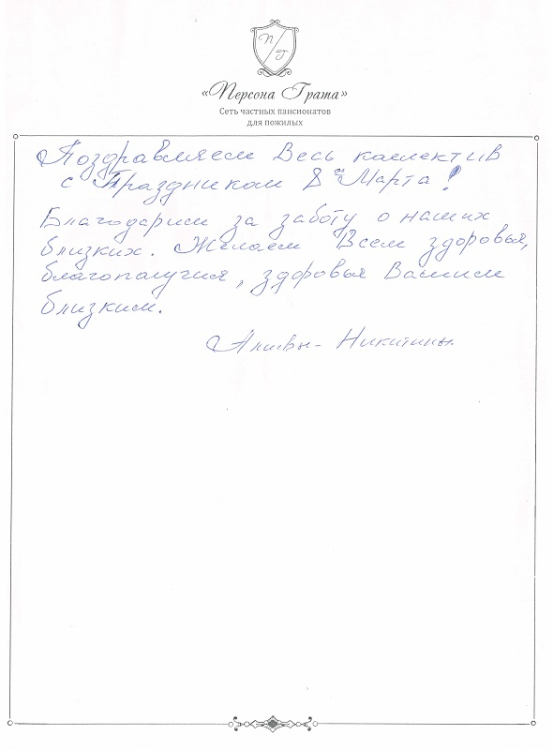 П
Г
«Персона Грата»
Сеть частных пансионатов
для пожилых
Поздравляем Весь коллектив
с Праздником 8 Марта!
Благодарим за заботу о наших
близких. Желаем Всем здоровья,
благополучия, здоровья Вашим
близким.
Никитины.